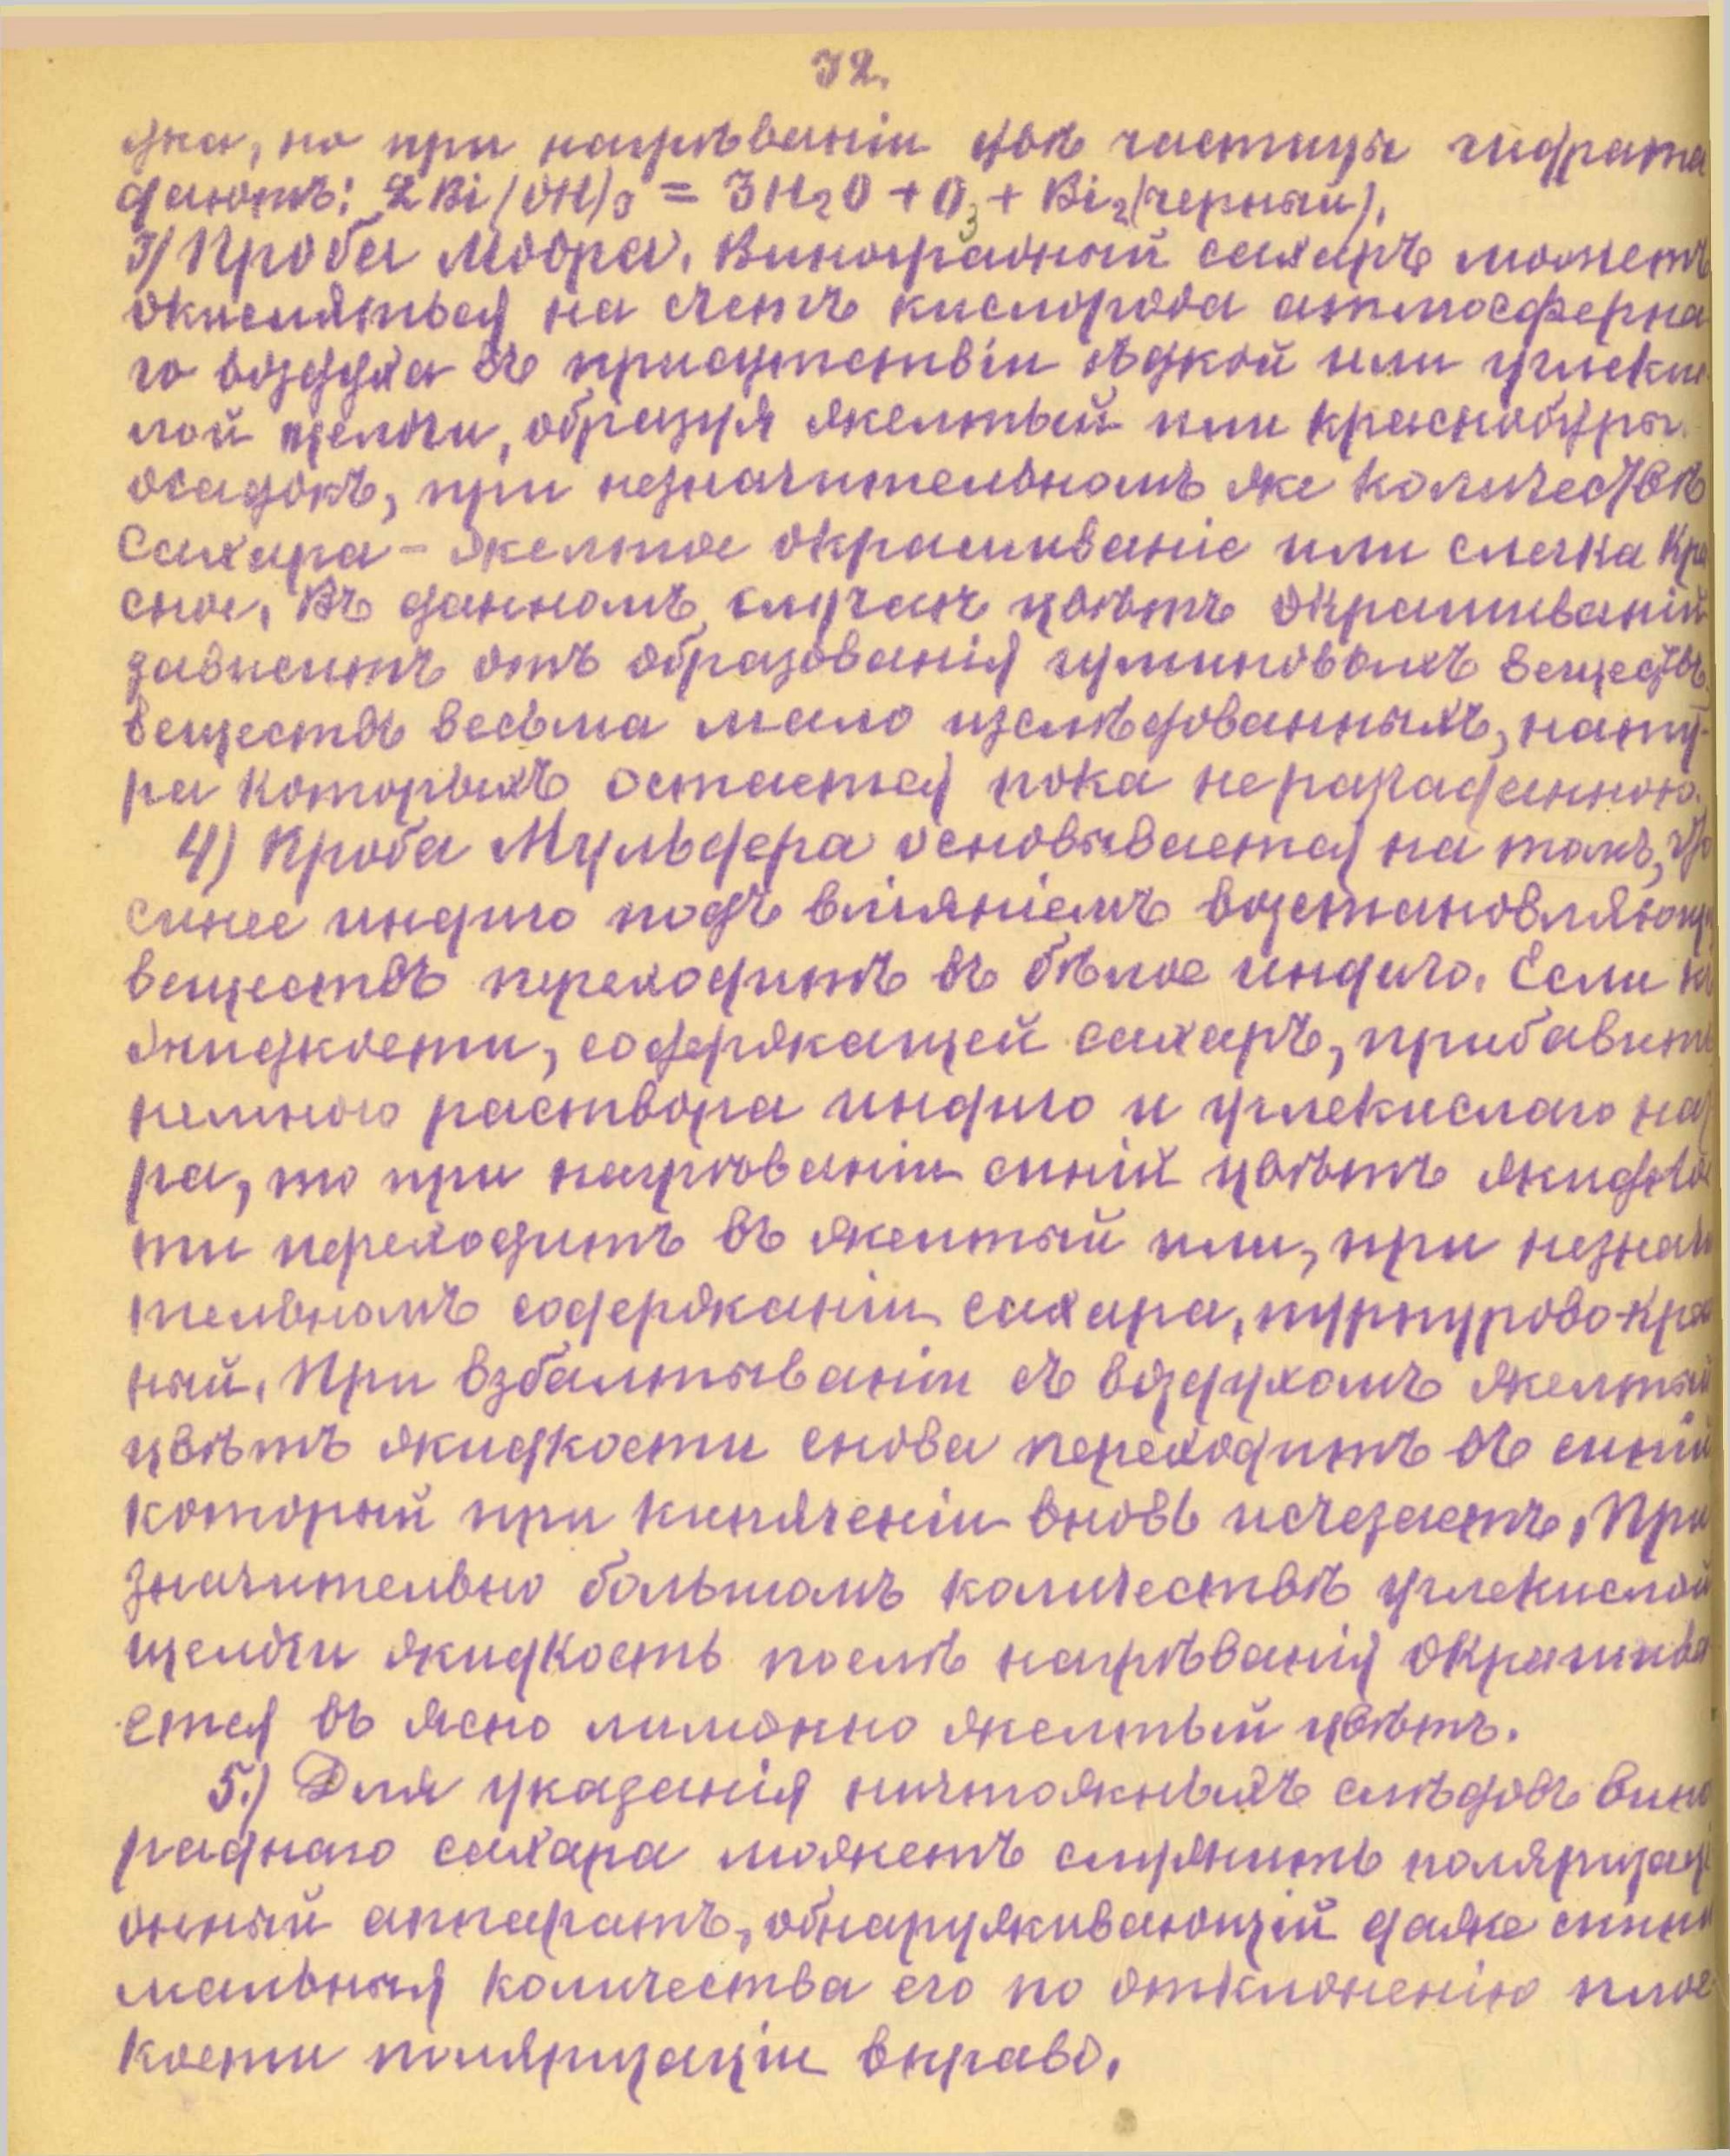 72.
жа, но при нагрѣваніи двѣ частицы гидрата
даютъ: 2Bi(OH)3 = 3H2O + O3 + Bi2 (черный).
3) Проба Моора. Виноградный сахаръ можетъ
окисляться на счетъ кислорода атмосферна
го воздуха въ присутствіи ѣдкой или углекис
лой щелочи, образуя желтый или краснобуры
осадокъ, при незначительномъ же количествѣ
сахара - желтое окрашиваніе или слегка кра
сное. Въ данномъ случаѣ цвѣтъ окрашиваній
зависитъ отъ образованія гуминовыхъ веществъ,
веществъ весьма мало изслѣдованныхъ, нату-
ра которыхъ остается пока неразгаданною.
4) Проба Мульдера основывается на томъ, что
синее индиго подъ вліяніемъ возстановляющ
веществъ переходитъ въ бѣлое индиго. Если къ
жидкости, содержащей сахаръ, прибавить
раствора индиго и углекислаго нат
ра, то при нагрѣваніи синій цвѣтъ жидкос
ти переходитъ въ желтый или, при незначи
тельномъ содержаніи сахара, пурпурово-крас
ный. При взбалтываніи съ воздухомъ желтый
цвѣтъ жидкости снова переходитъ въ синій
который при кипяченіи вновь исчезаетъ. При
значительно большомъ количествѣ углекислой
щелочи жидкость послѣ нагрѣванія окрашива
ется въ ясно лимонно желтый цвѣтъ.
5.) Для указанія ничтожныхъ слѣдовъ вино
раднаго сахара можетъ служить поляризаці
онный аппаратъ, обнаруживающій даже мини
мальныя количества его по отклоненію плос
кости поляризаціи вправо.